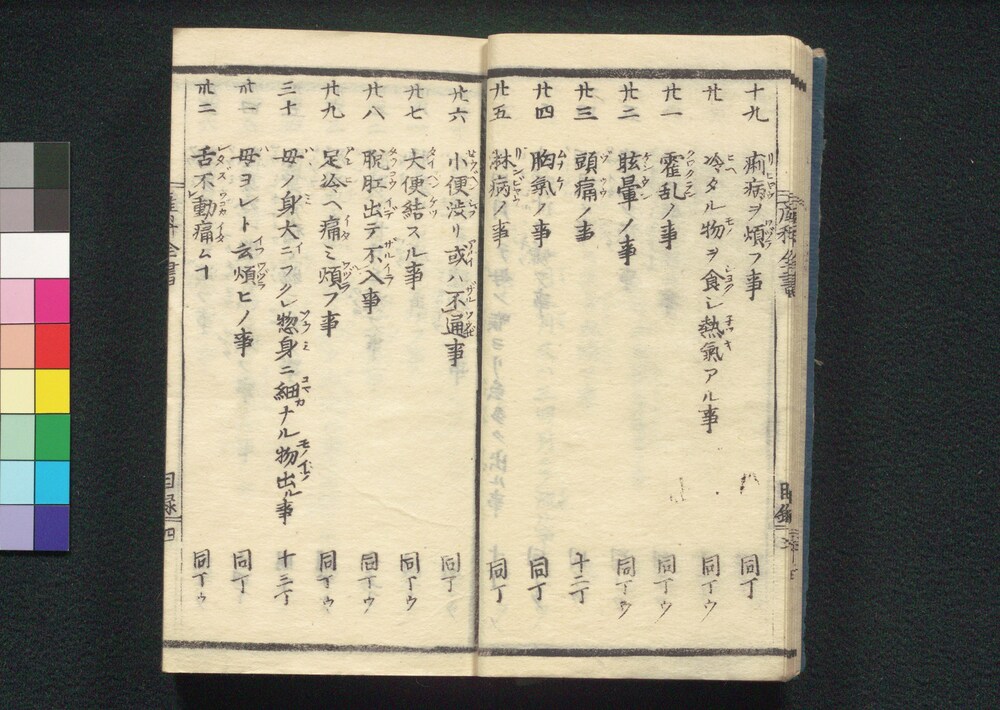 十九 痢病ヲ煩フ事 同丁
廿 冷タル物ヲ食シ熱氣アル事 同丁ウ
廿一 霍乱ノ事 同丁ウ
廿二 眩暈ノ事 同丁ウ
廿三 頭痛ノ事 十二丁
廿四 胸氣ノ事 同丁
廿五 淋病ノ事 同丁
廿六 小便渋リ或ハ不通事 同丁ウ
廿七 大便結スル事 同丁ウ
廿八 脱肛出テ不入事 同丁ウ
廿九 足冷ヘ痛ミ煩フ事 同丁ウ
三十 母ノ身大ニフクレ惣身ニ細ナル物出ル事 十三丁
卅一 母ヲレト云煩ヒノ事 同丁
卅二 舌不動痛ムヿ 同丁ウ
産科全書
目録 四